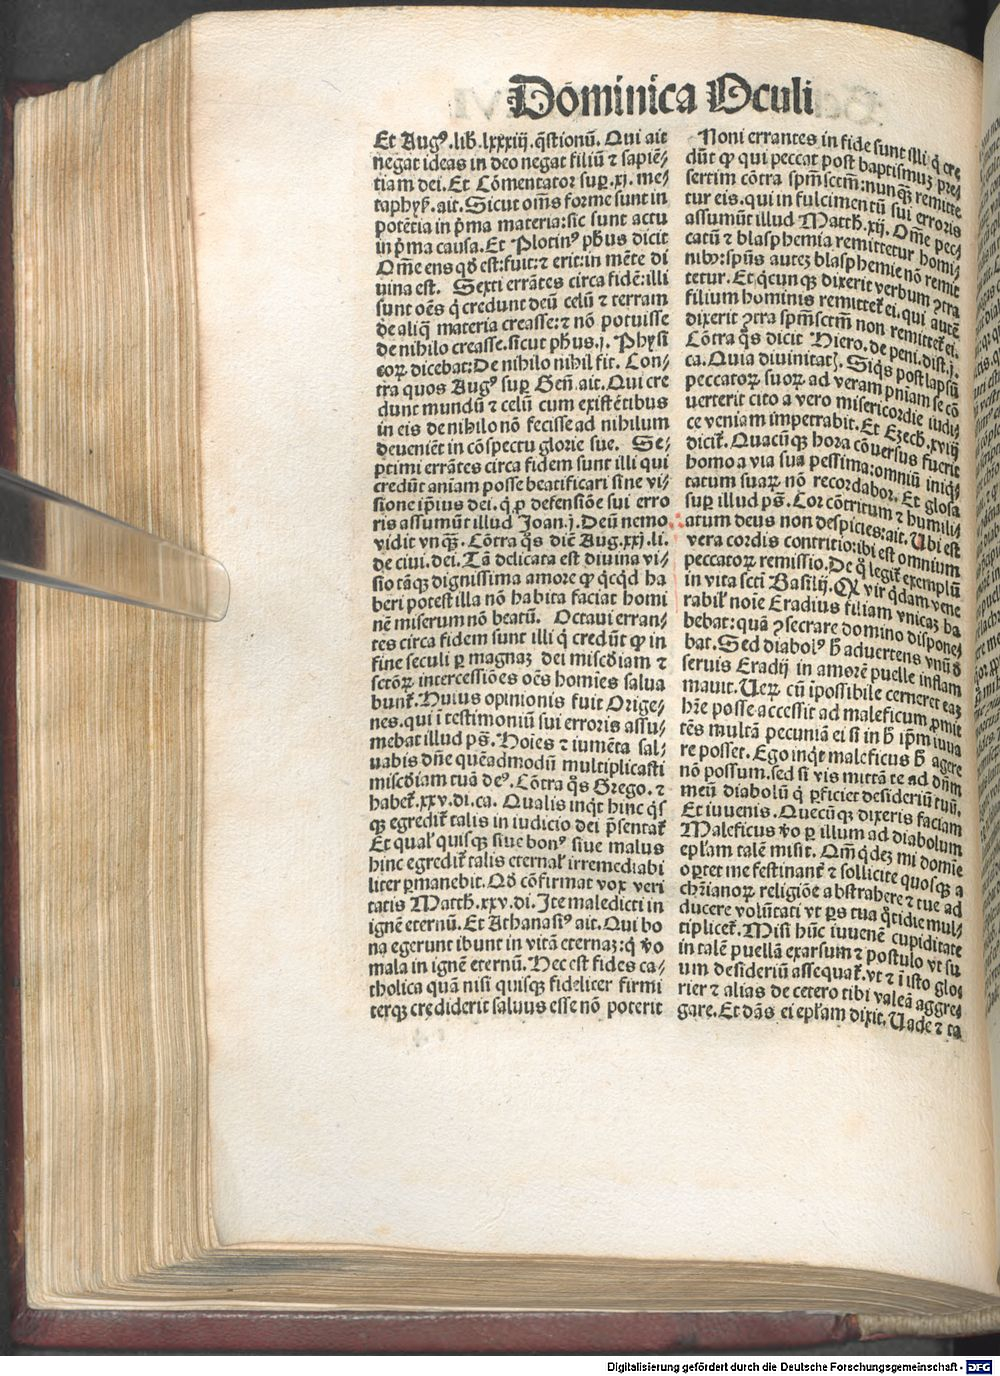 Dōminica Oculi
Et Augꝰ.lib.lxxxiij.q̄stionū. Qui ait
negat ideas in deo negat filiū ⁊ sapiē⸗
tiam dei. Et Cōmentator suꝑ.xj. me⸗
taphyſ.ait. Sicut om̄s forme sunt in
potētia in p̄ma materia:sic sunt actu
in p̄ma causa. Et Plotinꝰ pħus dicit
Om̄e ens qd̓ est:fuit:⁊ erit:in mēte di
uina est. Sexti errātes circa fidē:illi
sunt oēs q̇ credunt deū celū ⁊ terram
de aliq̄ materia creasse:⁊ nō potuisse
de nihilo creasse.sicut pħus.j. Physi
coꝝ dicebat:De nihilo nihil fit. Con⸗
tra quos Augꝰ suꝑ Geñ.ait. Qui cre
dunt mundū ⁊ celū cum existētibus
in eis de nihilo nō fecisse ad nihilum
deueniēt in cōspectu glorie sue. Se⸗
ptimi errātes circa fidem sunt illi qui
credūt aniam posse beatificari sine vi⸗
sione ip̄ius dei. q̇ ꝓ defensiōe sui erro
ris assumūt illud Joan.j. Deū nemo
vidit vnqꝫ. Cōtra q̊s dic̄ Aug.xxj.li.
de ciui.dei. Tā delicata est diuina vi⸗
sio tāqꝫ dignissima amore ꝙ q̇cq̇d ha
beri potest illa nō habita faciat homi
nē miserum nō beatū. Octaui erran⸗
tes circa fidem sunt illi q̇ credūt ꝙ in
fine seculi ꝑ magnaꝫ dei misc̄diam ⁊
sctōꝝ intercessiōes oēs homies salua
bunt̄. Huius opinionis fuit Orige⸗
nes.qui ī testimoniū sui erroris assu⸗
mebat illud ps̄. Hoīes ⁊ iumēta sal⸗
uabis dn̄e quēadmodū multiplicasti
misc̄diam tuā deꝰ. Cōtra q̊s Grego. ⁊
habet̄.xxv.di.ca. Qualis inq̇t hinc q̇s
qꝫ egredit̄ talis in iudicio dei p̄sentat̄
Et qual̓ quisqꝫ siue bonꝰ siue malus
hinc egredit̄ talis eternal̓ irremediabi
liter ꝑmanebit. Qd̓ cōfirmat vox veri
tatis Matth.xxv.di. Ite maledicti in
ignē eternū. Et Athanasiꝰ ait. Qui bo
na egerunt ibunt in vitā eternaꝫ:q̇ v̊o
mala in ignē eternū. Hec est fides ca⸗
tholica quā nisi quisqꝫ fideliter firmi
terqꝫ crediderit saluus esse nō poterit
Noni errantes in fide sunt illi q̇ cre
dūt ꝙ qui peccat post baptismuꝫ pre⸗
sertim cōtra spm̄sctm̄:nunqꝫ remitte
tur eis.qui in fulcimentū sui erroris
assumūt illud Matth.xij. Om̄e pec⸗
catū ⁊ blasphemia remittetur homi⸗
nibꝰ:spūs auteꝫ blasphemie nō remit
tetur. Et q̇cunqꝫ dixerit verbum ꝯtra
filium hominis remittet̄ ei. qui autē
dixerit ꝯtra spm̄sctm̄ non remittet̄ ei.
Cōtra q̊s dicit Hiero.de peni.dist.j.
ca. Quia diuinitatꝭ. Siq̇s post lapsū
peccatoꝝ suoꝝ ad veram pniam se cō
uerterit cito a vero misericordie iudi⸗
ce veniam impetrabit. Et Ezech.xviij
dicit̄. Quacūqꝫ hora cōuersus fuerit
homo a via sua pessima:omniū iniq̇⸗
tatum suaꝝ nō recordabor. Et glosa
suꝑ illud ps̄. Cor cōtritum ⁊ humili⸗
atum deus non despicies:ait. Ubi est
vera cordis contritio:ibi est omnium
peccatoꝝ remissio. De q̊ legit̄ exemplū
in vita scti Basilij. Qꝙ vir q̇dam vene
rabil̓ noīe Eradius filiam vnicaꝫ ha
bebat:quā ꝯsecrare domino dispone⸗
bat. Sed diabolꝰ ħ aduertens vnū ð
seruis Eradij in amorē puelle inflam
mauit. Ueꝝ cū ipossibile cerneret eaꝫ
hr̄e posse accessit ad maleficum ꝓmit
tēs multā pecuniā ei si in ħ ip̄m iuua
re posset. Ego inq̇t maleficus ħ agere
nō possum.sed si vis mittā te ad dn̄m
meū diabolū q̇ ꝑficiet desideriū tuū.
Et iuuenis. Quecūqꝫ dixeris faciam
Maleficus v̊o ꝑ illum ad diabolum
epl̄am talē misit. Qm̄ q̇deꝫ mi domīe
oꝑtet me festinant̄ ⁊ sollicite quosqꝫ a
chr̄ianoꝝ religiōe abstrahere ⁊ tue ad
ducere volūtati vt ꝑs tua q̊tidie mul⸗
tiplicet̄. Misi hūc iuuenē cupiditate
in talē puellā exarsum ⁊ postulo vt su
um desideriū assequat̄. vt ⁊ ī isto glo⸗
rier ⁊ alias de cetero tibi valeā aggre⸗
gare. Et dās ei epl̄am dixit. Uade ⁊ ta
Digitalisierung gefördert durch die Deutsche Forschungsgemeinschaft - DFG